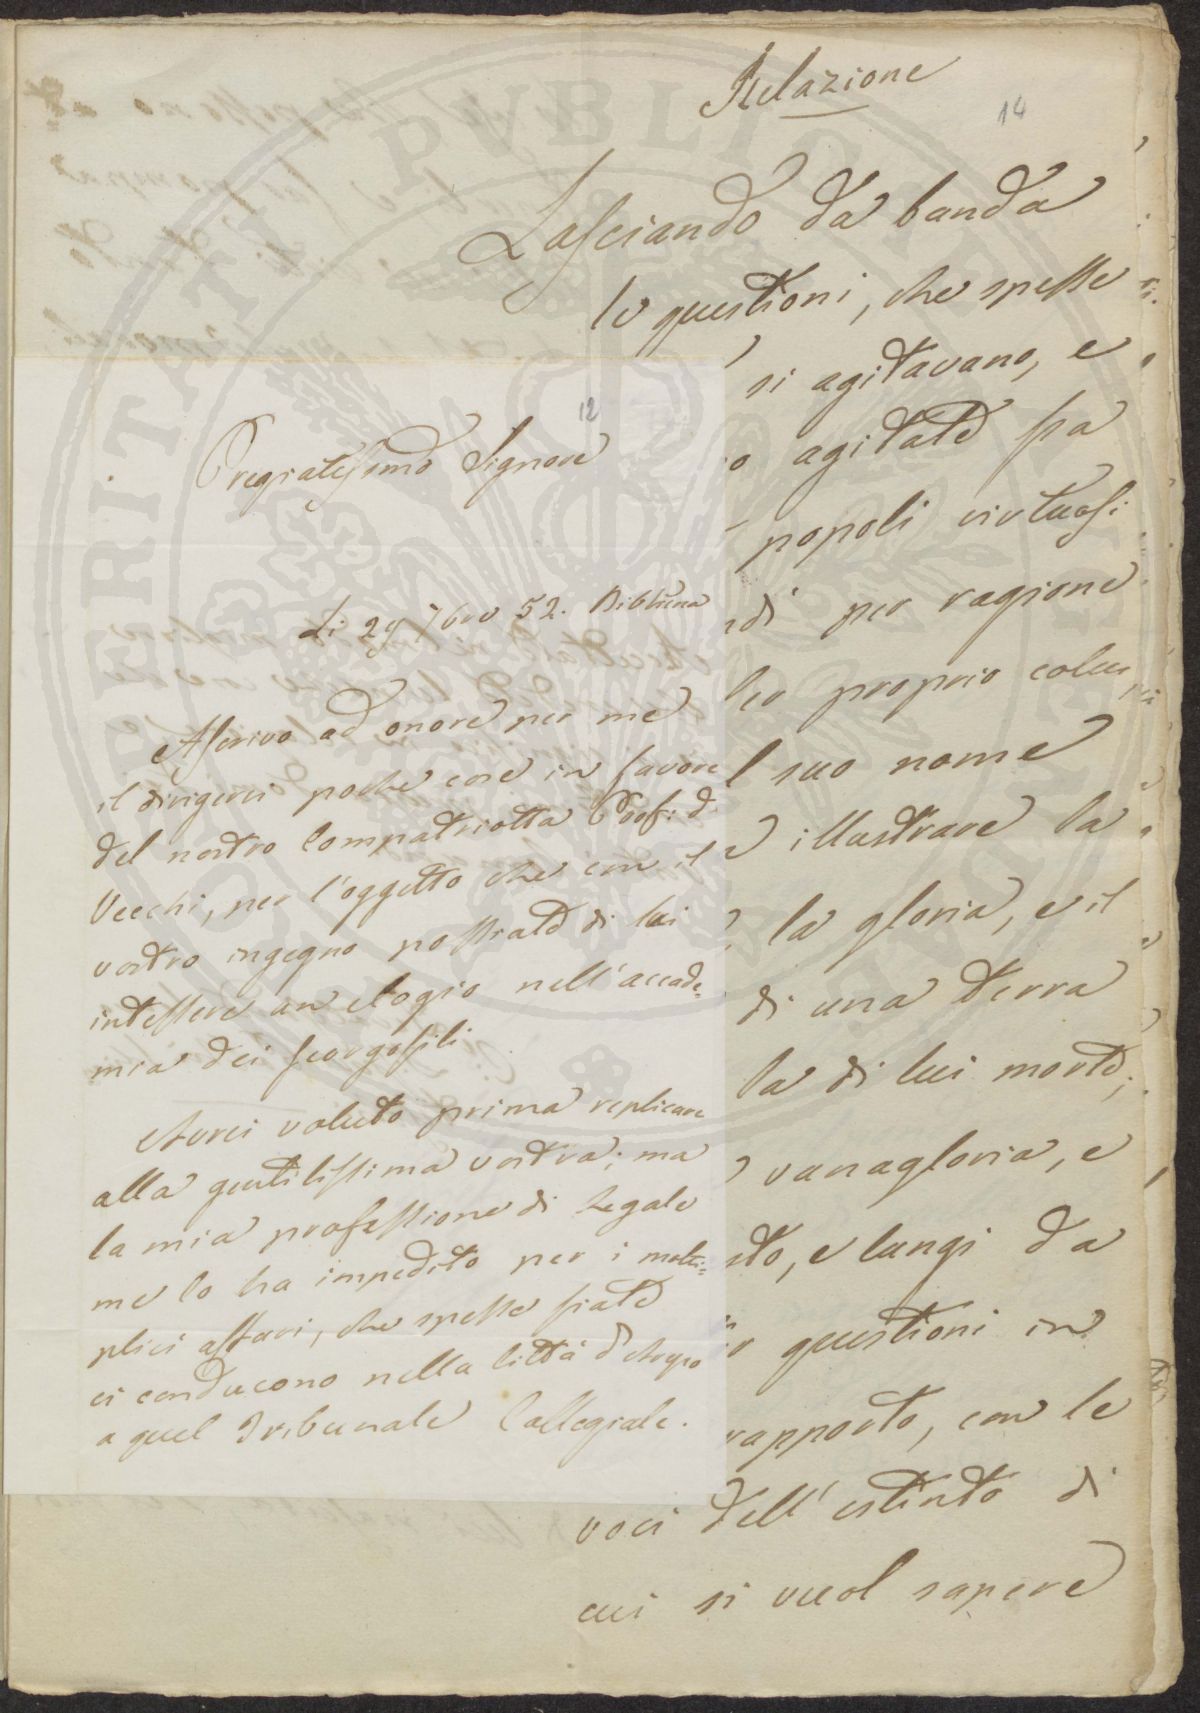 Relazione
14
Lasciando da banda
le questioni, che spesse
si agitavano, e
agitate fra
popoli virtuosi
per ragione
proprio
suo nome
illustrare la
la gloria, e il
di una terra
la di lui morte;
vanagloria, e
e lungi da
questioni in
rapporto, con le
voci dell'estinto di
cui si vuol sapere
12
Pregiatissimo Signore
Li 29 7bre 52. Bibbiena
Ascrivo ad onore per me
il dirigervi poche cose in favore
del nostro Compatriotta Prof: d
Vecchi, per l'oggetto che con il
vostro ingegno possiate di lui
intessere un elogio nell'accade=
mia dei Georgofili.
Avrei voluto prima replicare
alla gentilissima vostra; ma
la mia professione di Legale
me lo ha impedito per i molti=
plici affari, che spesse fiate
ci conducono nella Città d'Arezzo
a quel Tribunale Collegiale.